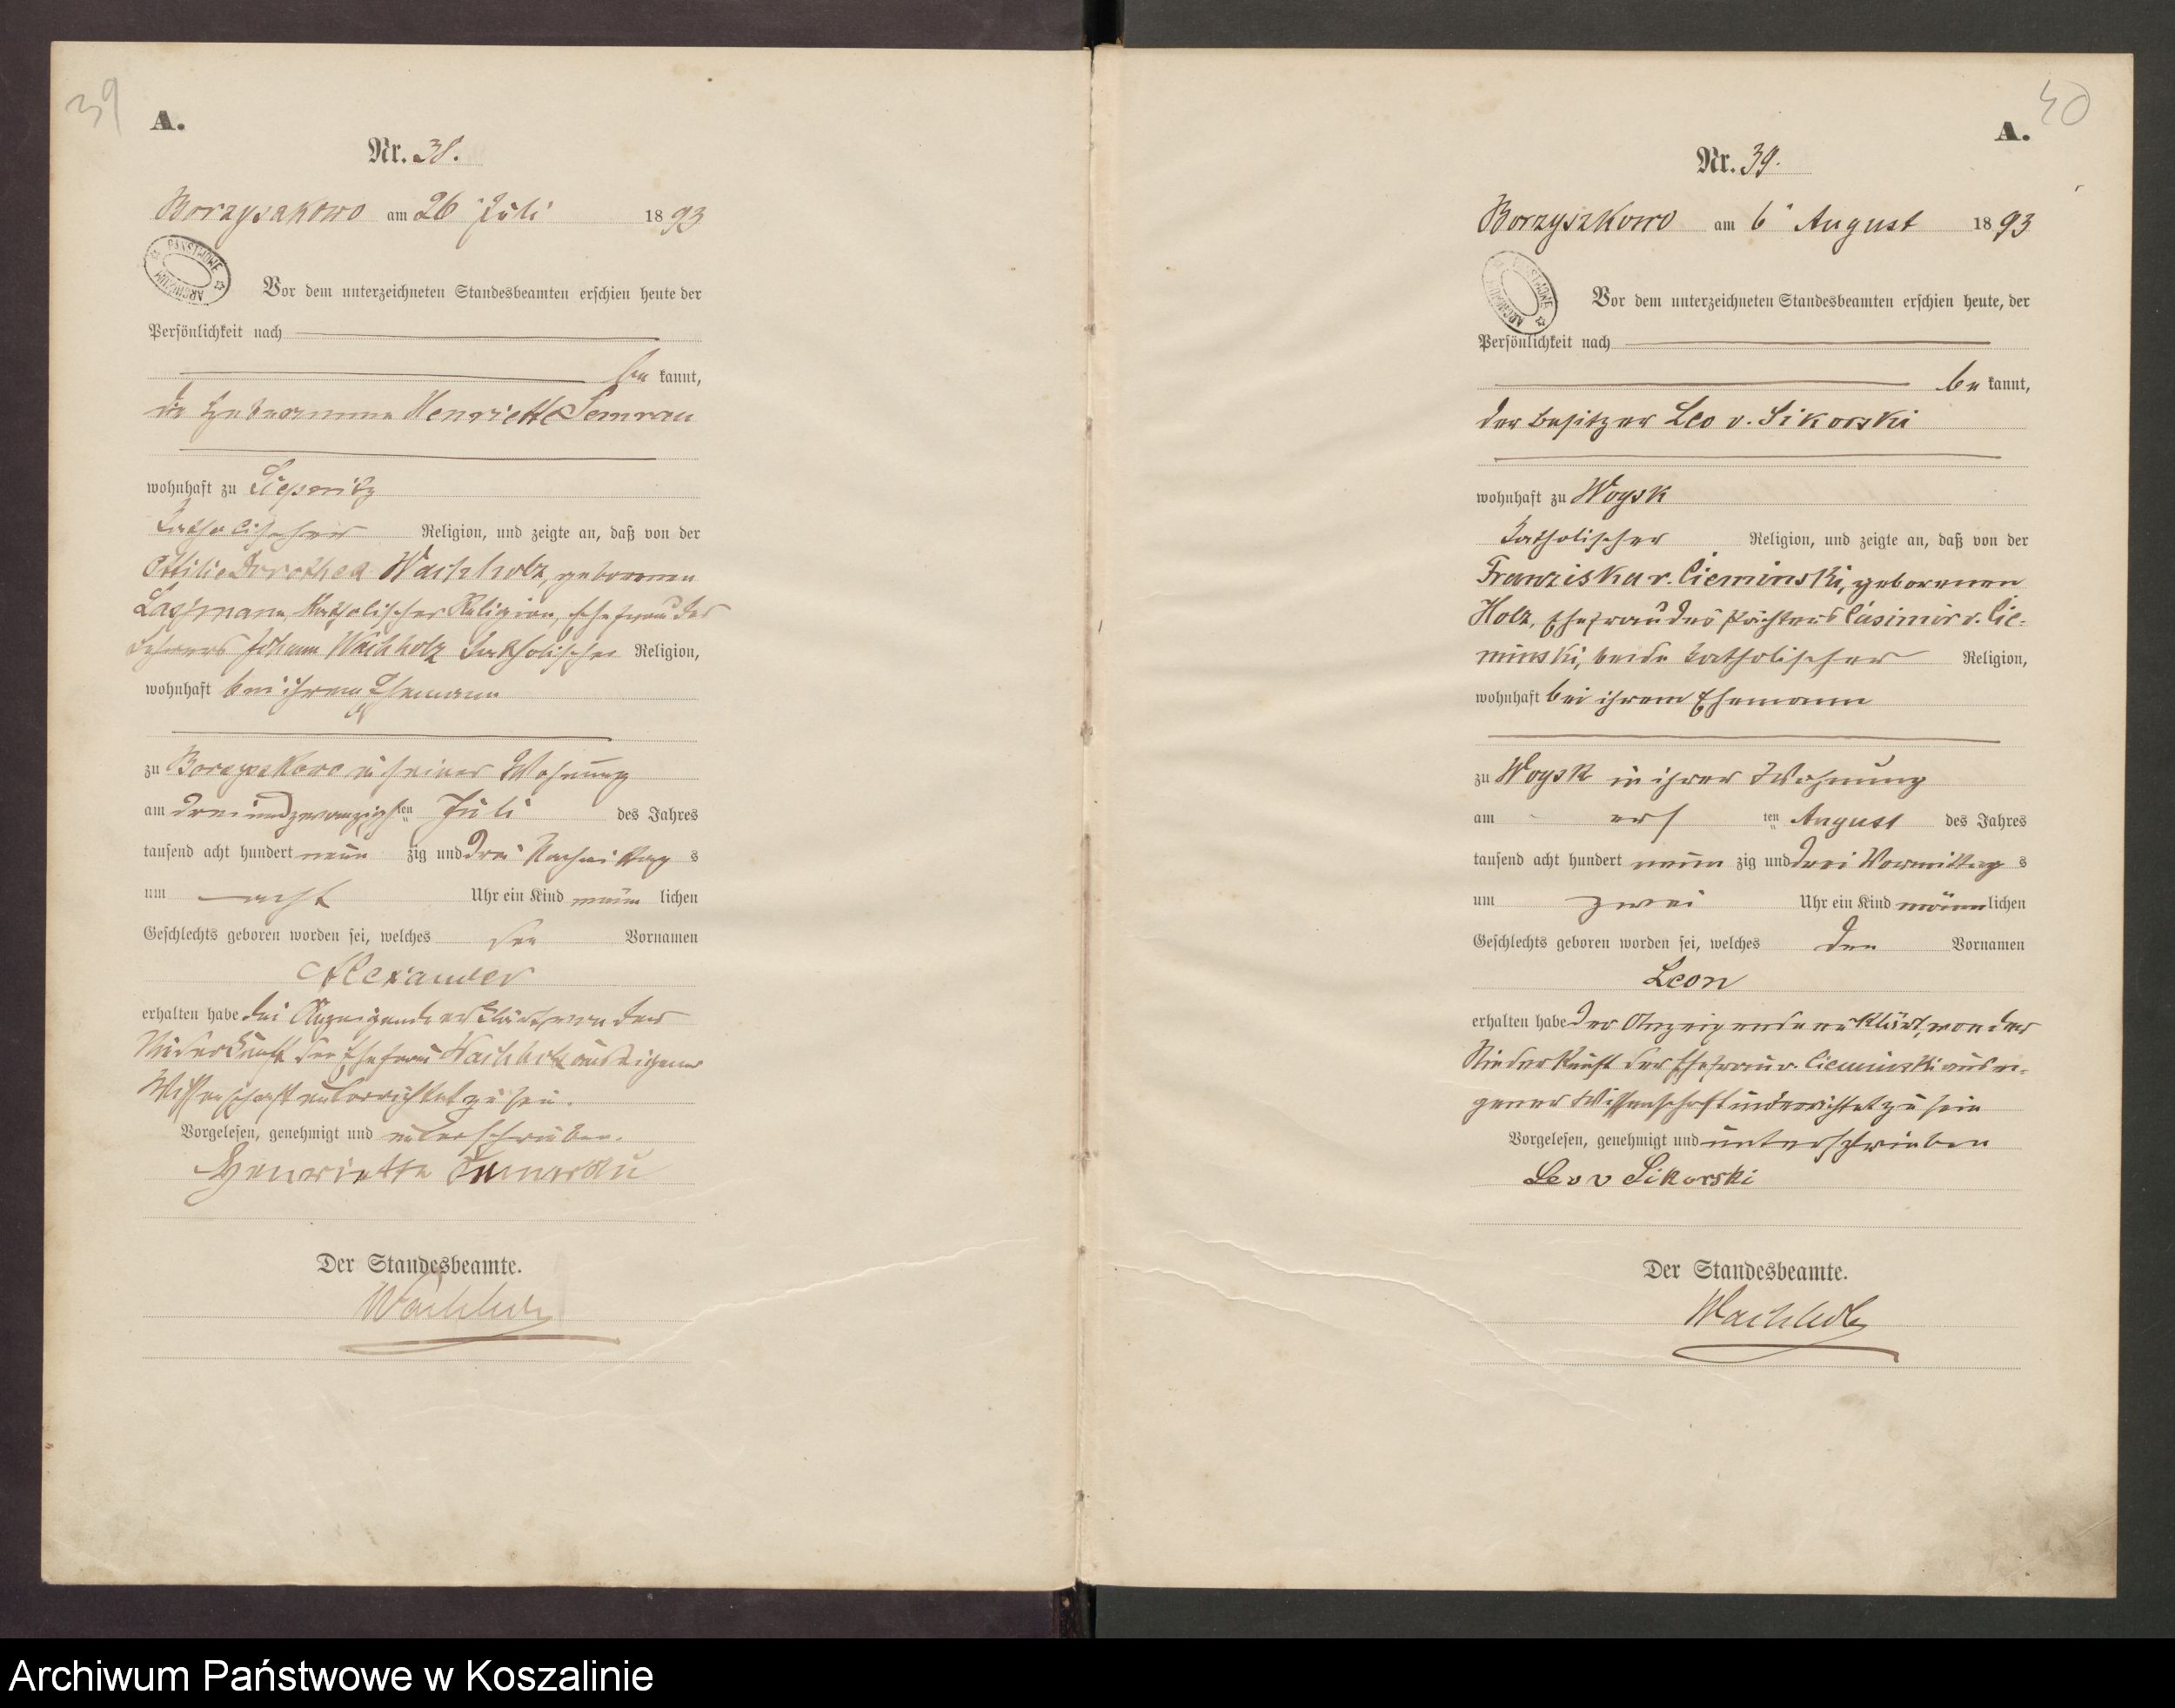 39
A.
Nr. 38.
Borzyszkowo am 26 Juli 1893
PAŃSTWOWE ARCHIWUM
Vor dem unterzeichneten Standesbeamten erschien heute der
Persönlichkeit nach
be kannt,
die Hebamme Henriette Semrau
wohnhaft zu
katholischer Religion, und zeigte an, daß von der
Ottilie Dorothea Wachholz, geborenen
katholischer Religion, Ehefrau des
Lehrers Johann Wachholz katholischer Religion,
wohnhaft bei ihrem Ehemann
zu Borzyszkowo in seiner Wohnung
am dreiundzwanzigsten Juli des Jahres
tausend acht hundert neun zig und drei Nachmittag s
um acht Uhr ein Kind männ lichen
Geschlechts geboren worden sei, welches den Vornamen
Alexander
erhalten habe die Anzeigende erklärt, von der
Niederkunft der Ehefrau Wachholz aus eigener
Wissenschaft unterrichtet zu sein.
Vorgelesen, genehmigt und unterschrieben.
Henriette Semrau
Der Standesbeamte.
Wachholz
40
A.
Nr. 39.
Borzyszkowo am 6 August 1893
PAŃSTWOWE ARCHIWUM
Vor dem unterzeichneten Standesbeamten erschien heute, der
Persönlichkeit nach
be kannt,
der Besitzer Leo v. Sikorski
wohnhaft zu Woysk
katholischer Religion, und zeigte an, daß von der
Franziska v. Cieminski, geborenen
Holz, Ehefrau des Pächters Casimir v. Cie-
minski, beide katholischer Religion,
wohnhaft bei ihrem Ehemann
zu Woysk in ihrer Wohnung
am ersten August des Jahres
tausend acht hundert neun zig und drei Vormittag s
um zwei Uhr ein Kind männlichen
Geschlechts geboren worden sei, welches den Vornamen
Leon
erhalten habe der Anzeigende erklärt, von der
Niederkunft der Ehefrau v. Cieminski aus ei-
gener Wissenschaft unterrichtet zu sein
Vorgelesen, genehmigt und unterschrieben
Leo v Sikorski
Der Standesbeamte.
Wachholz
Archiwum Państwowe w Koszalinie